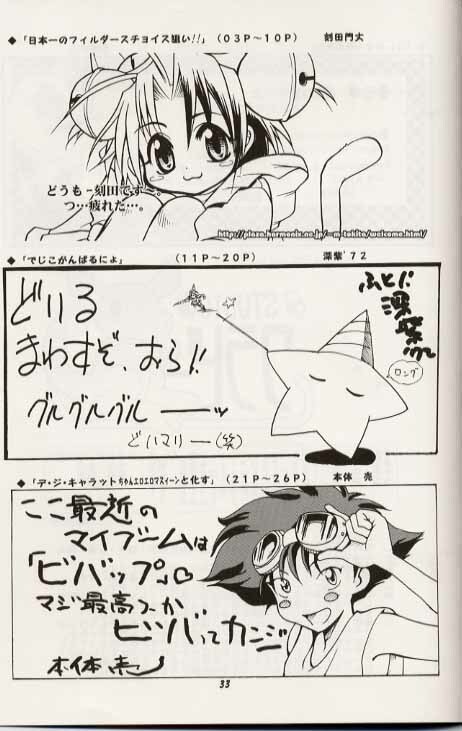 ◆「日本一のフィルダースチョイス狙い!!」(03P～10P) 刻田門大
どうも－刻田です～。
つ…疲れた…。
◆「でじこがんばるにょ」 (11P～20P) 深紫'72
どりる
まわすぞ、おら!!
グルグルグルーーッ
どリマリー(笑)
ロング
◆「デ・ジ・キャラットちゃんエロエロマスィーンと化す」(21P～26P) 本体 売
ここ最近の
マイブームは
「ビバップ」♡
マジ最高つーか
ビツバってカンジ
本体 売
33